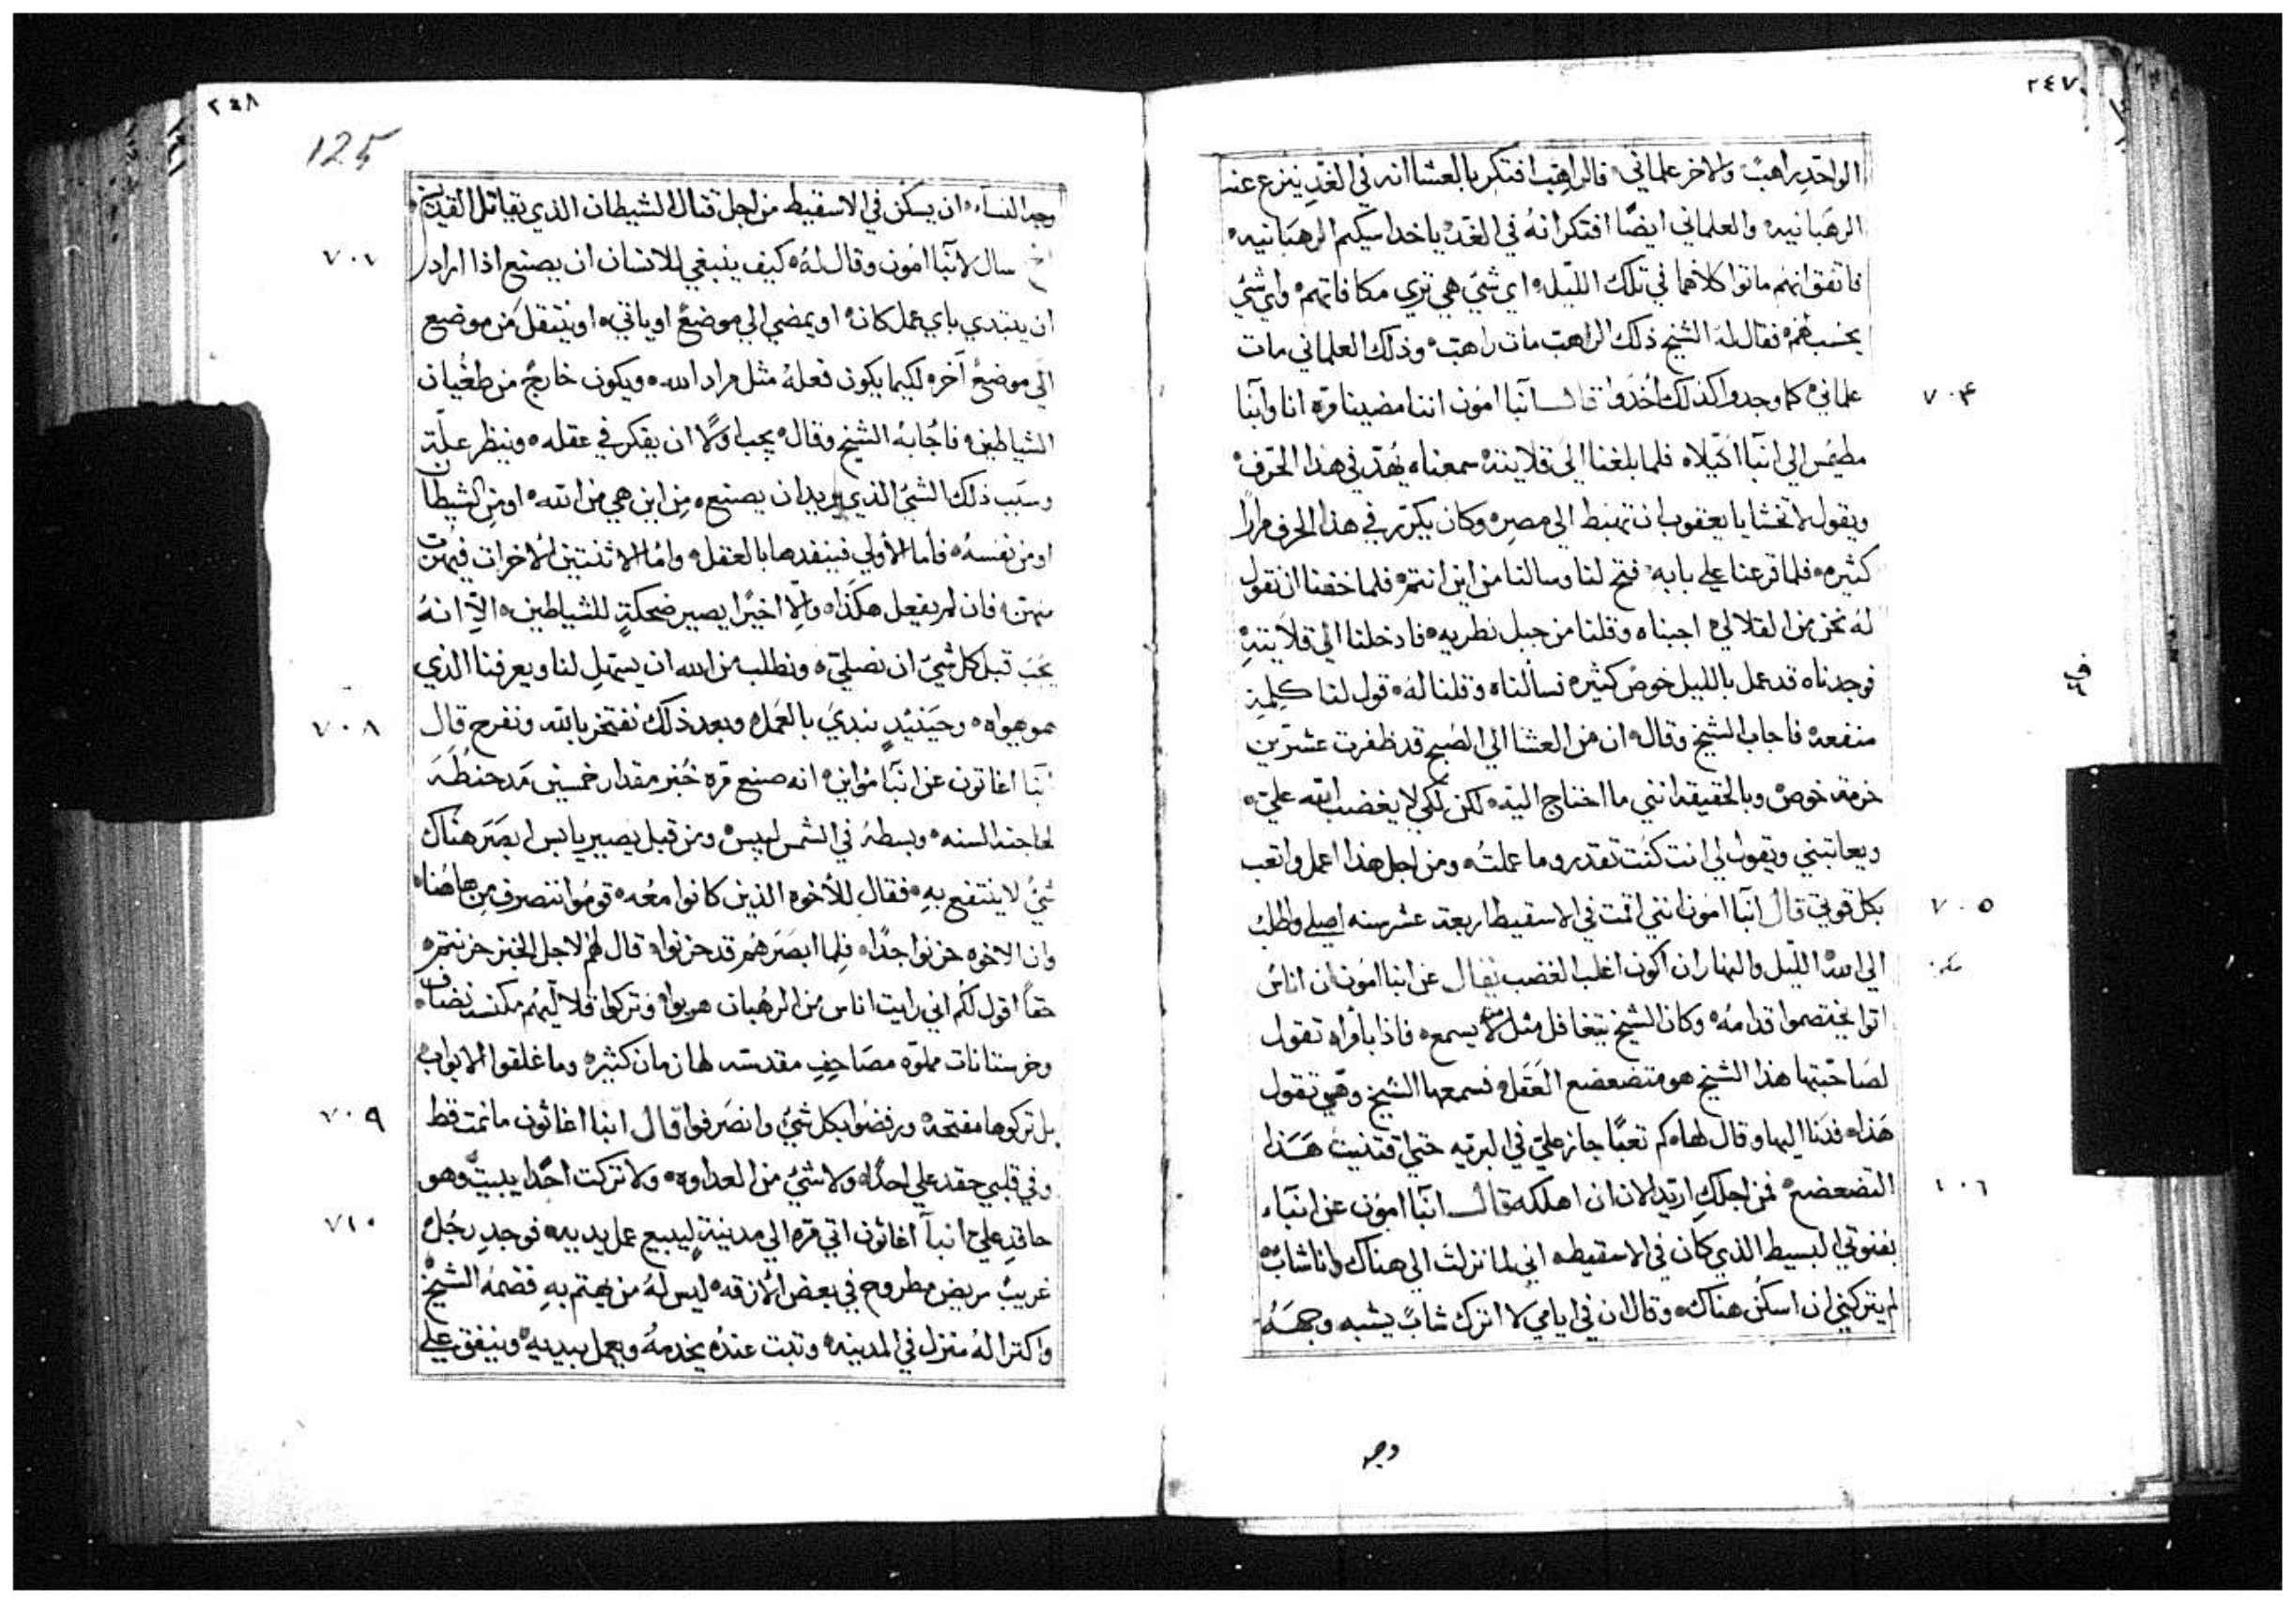 ٢٤٧
الواحد راهبً والاخر علماني فالراهب افتكر بالعشا انه في الغد ينزع عنه
الرهبانيه والعلماني ايضًا افتكر انهُ في الغد ياخد اسكيم الرهبانيه
فاتفق انهم ماتوا كلاهما في تلك الليله اي شي هي تري مكافاتهم واي شي
يحسب لهم فقال له الشيخ ذلك الراهب مات راهب وذلك العلماني مات
علماني كما وجدوا كذلك أُخذوا قال انبا امون اننا مضينا مره انا وانبا
٧٠٤
مطيمس الي انبا اكيلا فلما بلغنا الي قلايته سمعناه يهد في هذا الحرف
ويقول لا تخشا يا يعقوب ان تهبط الي مصر وكان يكرر في هذا الحرف مرارًا
كثيره فلما قرعنا علي بابه فتح لنا وسالنا من اين انتم فلما خفنا ان نقول
له نحن من القلالي اجبناه وقلنا من جبل نطريه فادخلنا الي قلايته
فوجدناه قد عمل بالليل خوص كثيره فسالناه وقلنا له قول لنا كلمة
منفعه فاجاب الشيخ وقال ان من العشا الي الصبح قد ظفرت عشرين
حزمة خوص وبالحقيقه انني ما احتاج اليه لكن لكي لا يغضب الله علي
ويعاتبني ويقول لي انت كنت تقدر وما عملته ومن اجل هذا اعمل واتعب
بكل قوتي قال انبا امون انني اقمت في الاسقيط اربعة عشر سنه اصلي واطلب
٧٠٥
الي الله الليل والنهار ان اكون اغلب الغضب يقال عن انبا امون ان اناس
اتوا يختصموا قدامه وكان الشيخ يتغافل مثل من لا يسمع فاذا بامراه تقول
لصاحبتها هذا الشيخ هو متضعضع العقل فسمعها الشيخ وهي تقول
هذا فدنا اليها وقال لها كم تعبًا جاز علي في البريه حتي اقتنيت هذا
التضعضع فمن اجلكِ اريد الان ان اهلكه قال انبا امون عن انبا
بفنوتي البسيط الذي كان في الاسقيط اني لما نزلت الي هناك وانا شاب
لم يتركني ان اسكن هناك وقال ان في ايامي لا اترك شاب يشبه وجهه
وجه
٢٤٨
125
وجه النساء ان يسكن في الاسقيط من اجل قتال الشيطان الذي يقاتل القديسين
اخ سال لانبا امون وقال له كيف ينبغي للانسان ان يصنع اذا اراد
٧٠٧
ان يبتدي باي عمل كان او يمضي الي موضع او ياتي او ينتقل من موضع
الي موضع آخر لكيما يكون فعله مثل مراد الله ويكون خارج من طغيان
الشياطين فاجابه الشيخ وقال يجب اولا ان يفكر في عقله وينظر علّة
وسبب ذلك الشي الذي يريد ان يصنع من اين هي من الله او من الشيطان
او من نفسه فاما الأولي فينفدها بالعقل واما الاثنتين الاخرات فيهرب
منهن فان لم يفعل هكذا والا اخيرًا يصير ضحكة للشياطين الا انه
يجب قبل كل شي ان نصلي ونطلب من الله ان يتمهل لنا ويعرفنا الذي
هو هواه وحينئيد نبدي بالعمل وبعد ذلك نفتخر بالله ونفرح قال
٧٠٨
انبا اغاتون عن انبا مواين انه صنع مره خبز مقدار خمسين مد حنطة
لحاجة السنه وبسطه في الشمس لييبس ومن قبل يصير يابس ابصر هناك
شي لا ينتفع به فقال للأخوه الذين كانوا معه قوموا ننصرف من هاهنا
وان الاخوه حزنوا جدًا فلما ابصرهم قد حزنوا قال لهم لاجل الخبز حزنتم
حقًا اقول لكم اني رايت اناس من الرهبان هربوا وتركوا قلاليهم مكنسه نضاف
وخرستانات مملوه مصاحف مقدسه لها زمان كثير وما غلقوا الابواب
بل تركوها مفتحه ورفضوا بكل شي وانصرفوا قال انبا اغاثون ما نمت قط
٧٠٩
وفي قلبي حقد علي احدًا ولا شي من العداوه ولا تركت احدًا يبيت وهو
حاقد علي انبا اغاثون اتي مره الي مدينة ليبيع عمل يديه فوجد رجل
٧١٠
غريب مريض مطروح في بعض الأزقه ليس له من يهتم به فضمه الشيخ
واكترا له منزل في المدينه وتبت عنده يخدمه ويعمل بيديه وينفق علي